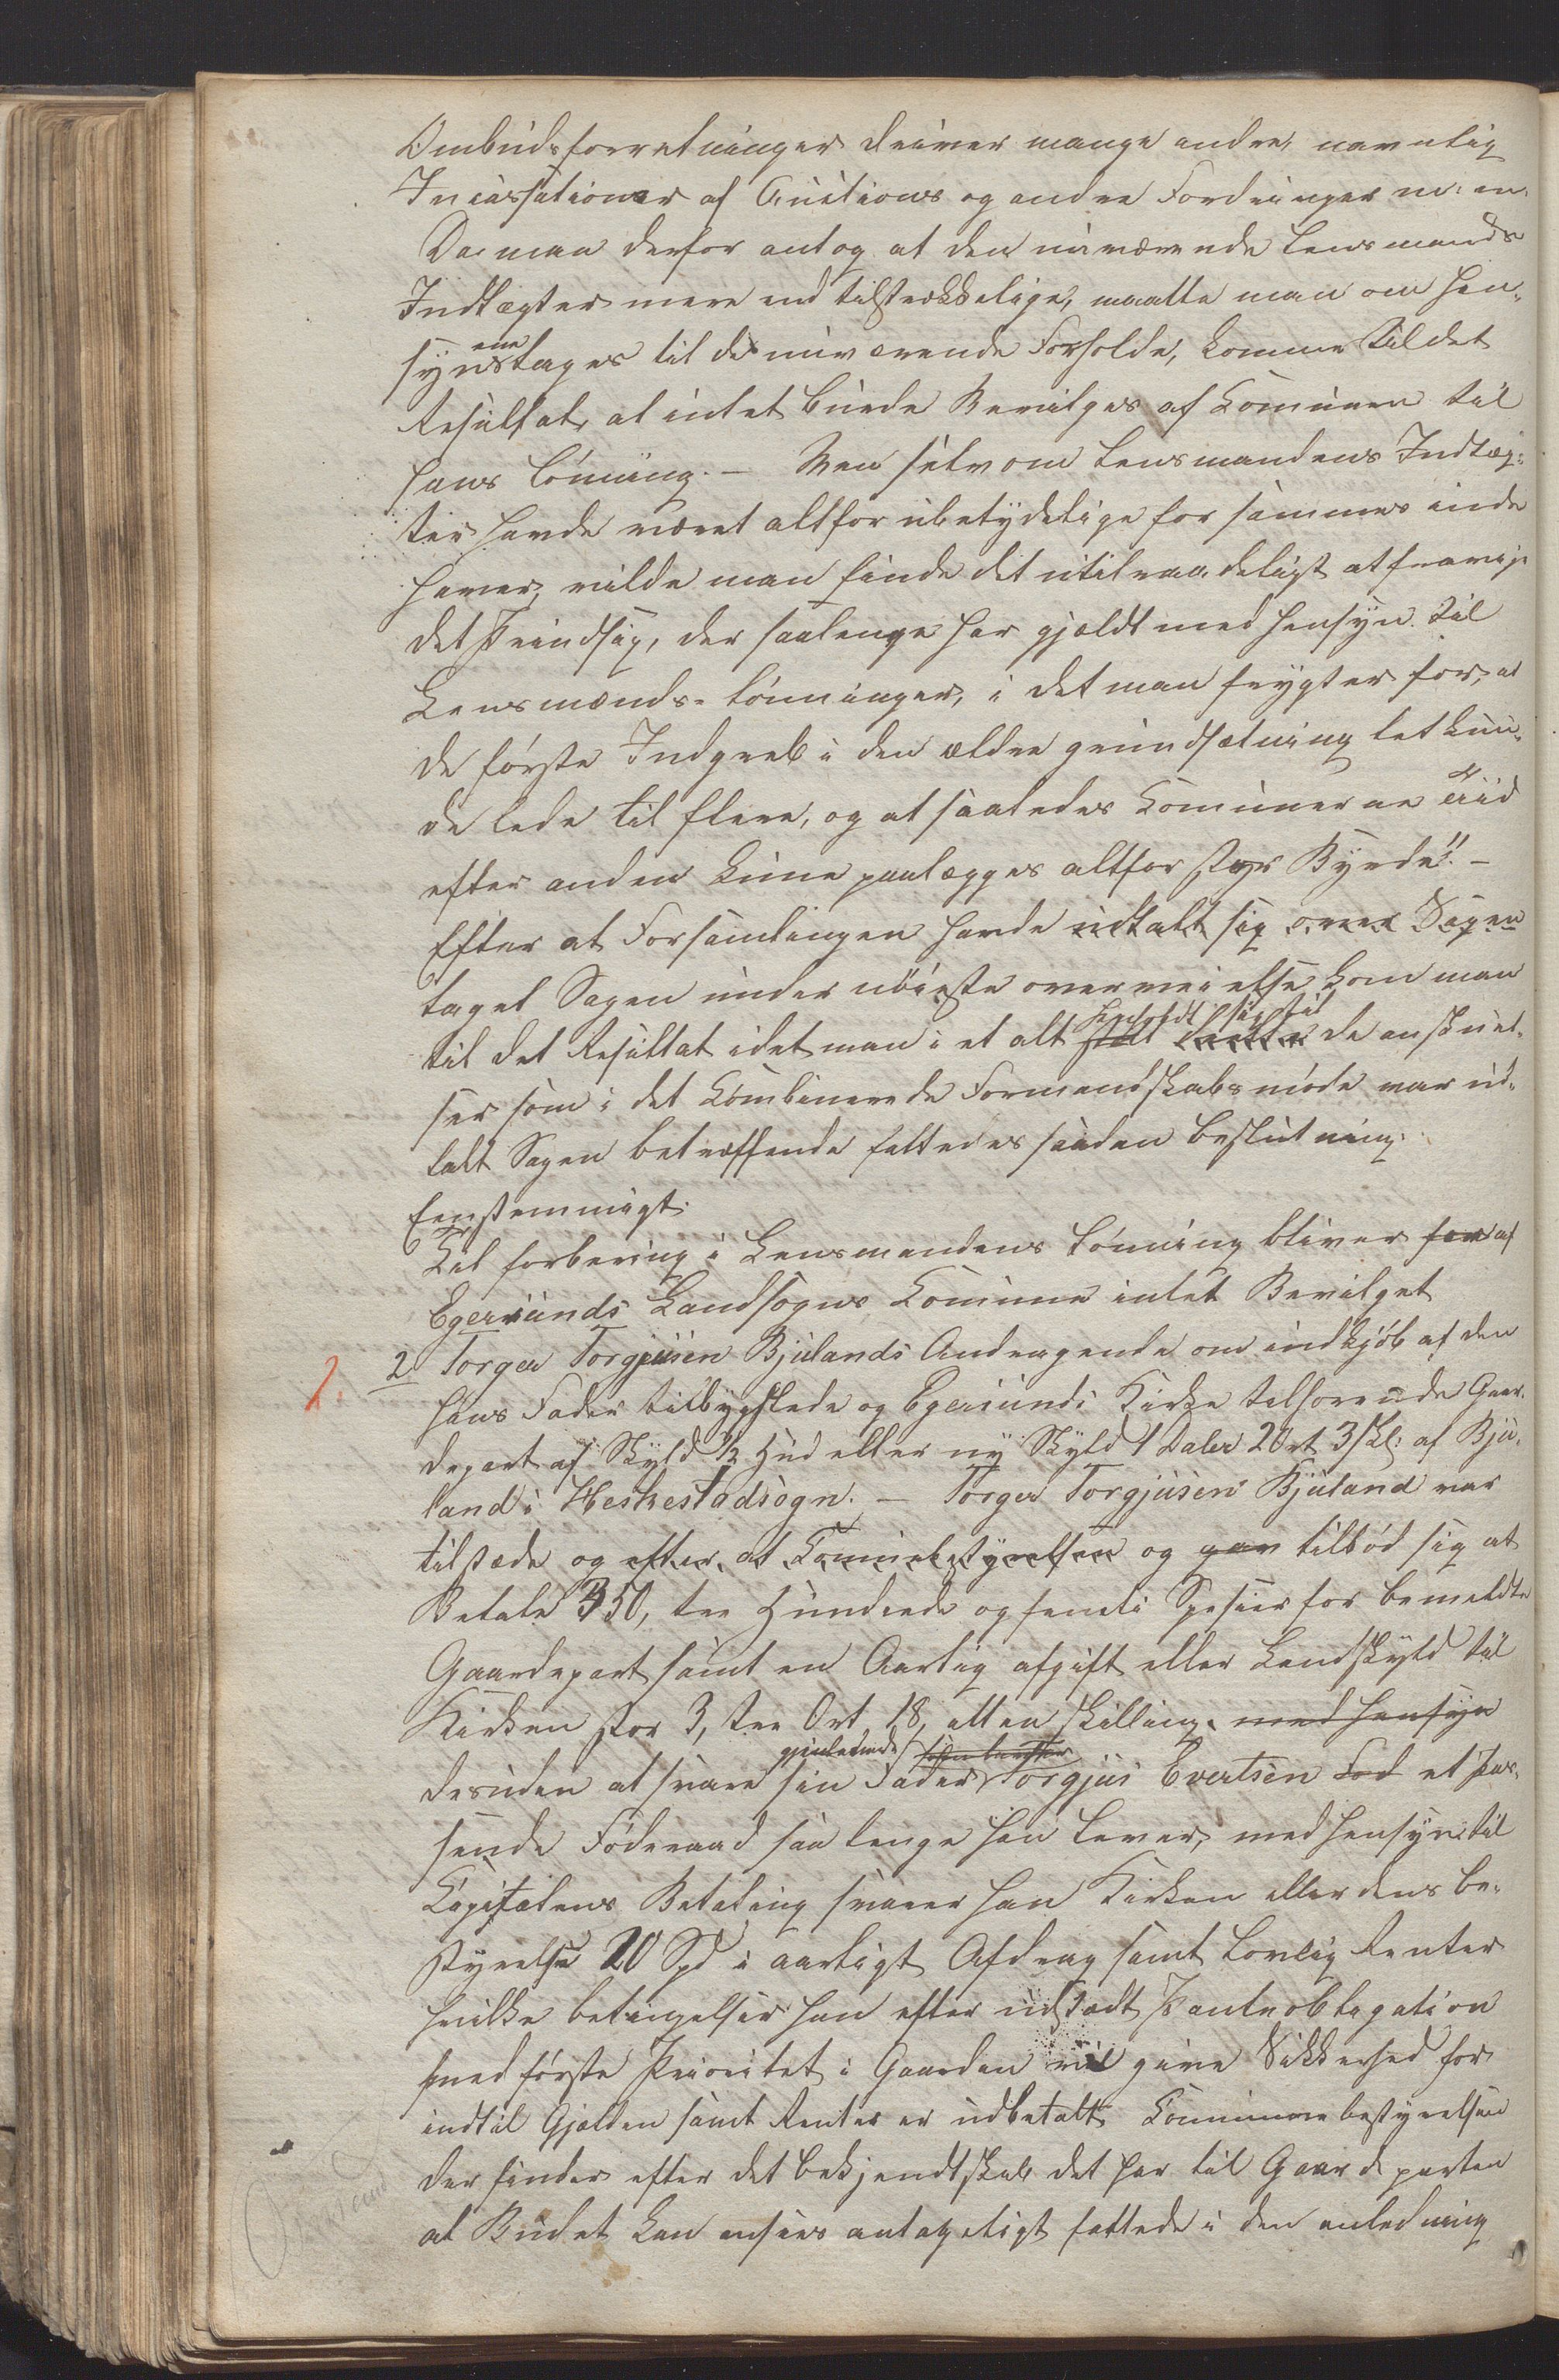 Ombudsforretninger driver mange andre, navnlig
Incassationer af Auctions og andre Fordringer m: m.
Da man derfor antog at den nuværende Lensmands
Indtægter mere end tilstrækkelige, maatte man om Hen,
synene tages til de nuværende Forholde, komme til det
Resultat, at intet burde Bevilges af Comunen til
hans Lönning. – Men selv om Lensmandens Indtæg,
ter havde været altfor ubetydelige for sammes inde
haver, vilde man finde det utilraadeligt at fravige
det Prindsip, der saalenge har gjældt med Hensyn til
Lensmænds-Lönninger, i det man frygter for, at
de förste Indgreb i den ældre grundsætning let kun,
de lede til flere, og at saaledes Comunerne Tiid
efter anden kune paalægges altfor stor Byrde". –
Efter at Forsamlingen havde udtalt sig over Sagen
taget Sagen under nöieste overveielse kom man
til det Resultat idet man i et alt henholdt sig til de anskuel,
ser som i det Combinerede Formandskabsmöde var ud,
talt Sagen betræffende fattedes saadan beslutning:
Eenstemmigt.
Til forbering i Lensmandens Lönning bliver for af
Egersunds Landsogns Comune intet Bevilget
2 Torger Torgjusen Bjulands Andragende om indkjöb af den
hans Fader tilbygslede og Egersunds Kirke tilhorende Gaar,
depart af Skyld 1/2 Hud eller ny Skyld 1 Daler 2 Ort 3 Skl: af Bju,
land i Heskestadsogn. – Torger Torgjusen Bjuland var
tilstæde og efter at Comunebestyrelsen og gav tilböd sig at
Betale 350, tre Hundrede og femti Spesier for bemeldte
Gaardepart samt en Aarlig afgift eller Landskyld til
Kirken stor 3, tre Ort 18, atten skilling. med hensyn
desuden at svare sin gjenlevende Fader Torgjus Evertsen Fod et pas,
sende Föderaad saa lenge han lever, med hensyn til
Capitalens Betaling svarer han Kirken eller dens be,
styrelse 20 Spd i aarligt Afdrag samt Lovlig Renter
hvilke betingelser han efter udstædt Panteobligation
med förste Prioritet i Gaarden vil give Sikkerhed for
indtil Gjælden samt Renter er udbetalt Comunebestyrelsen
der finder efter det bekjendtskab det har til Gaardeparten
at Budet kan ansees antageligt fattede i den anledning